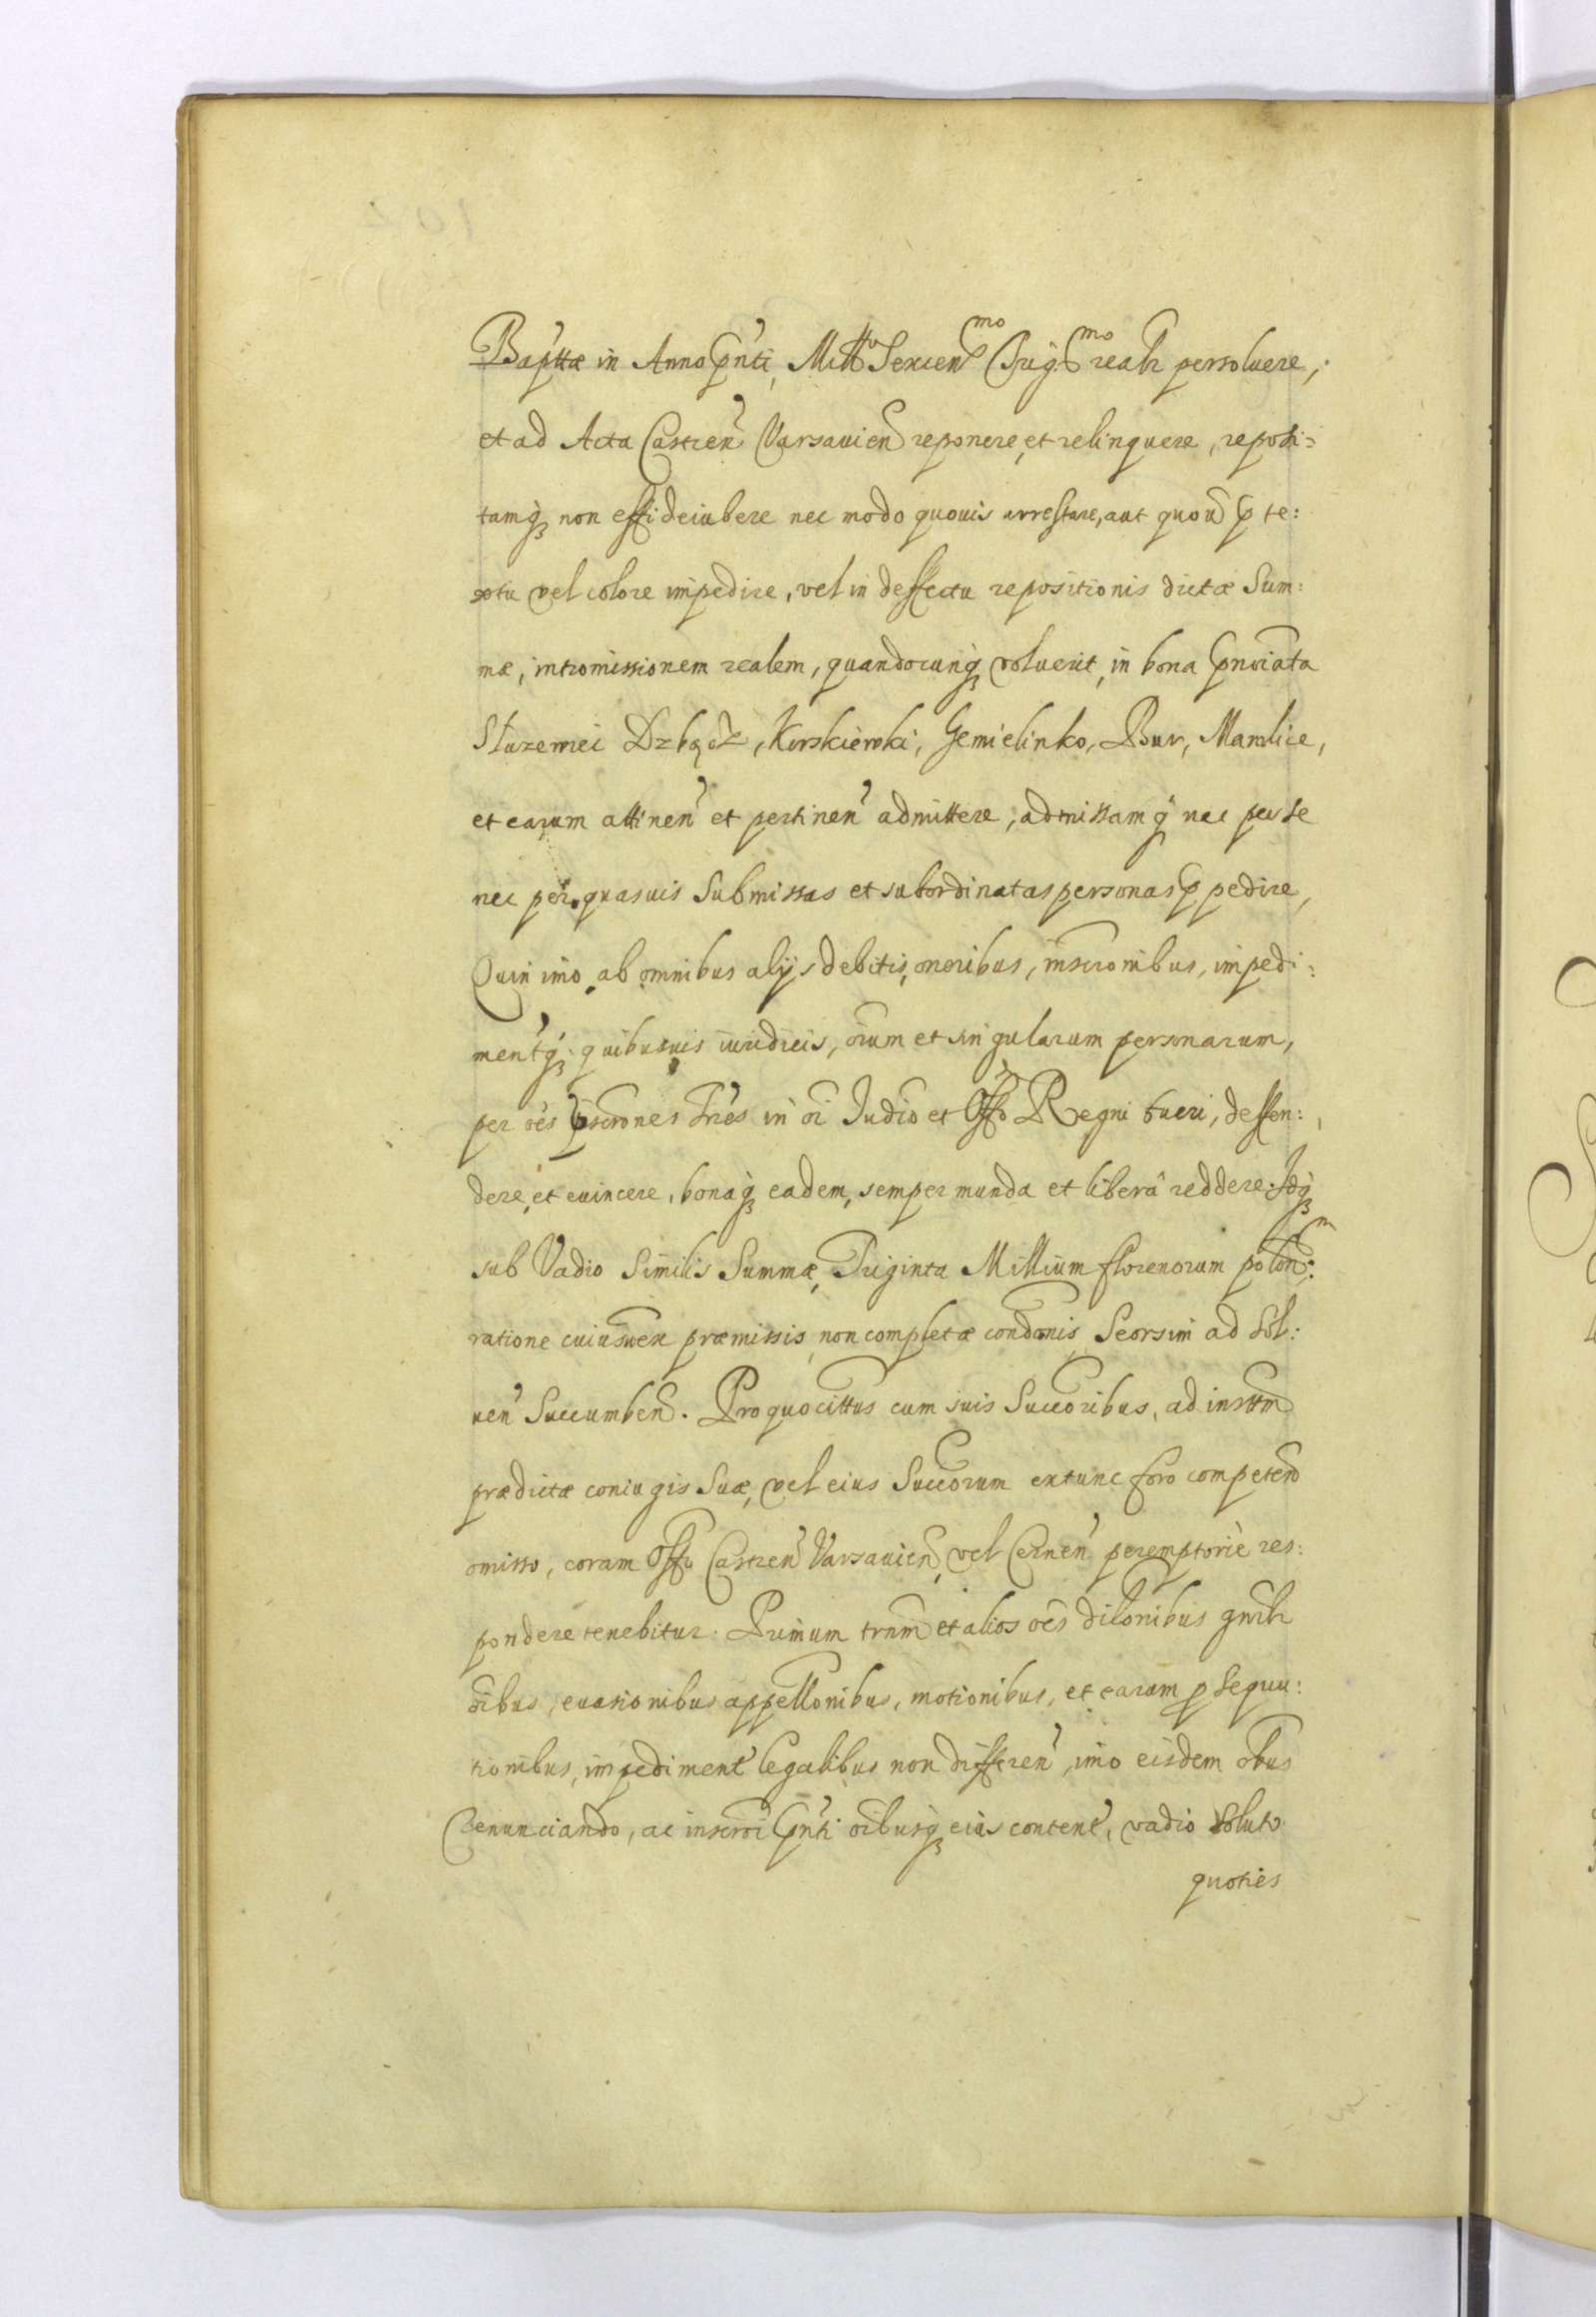 Bapttæ in Anno pnti, Mill° Sexcen^mo Trig^mo realr persoluere,
et ad Acta Castren Varsauien reponere, et relinquere, reposi=
tamq non effideiubere nec modo quouis arrestare, aut quou p te:
xtu vel colore impedire, vel in deffectu repositionis dictæ Sum:
mæ, intromissionem realem, quandocunq voluerit, in bona
Służewiei Dzbącz, Korskiewki, Gemielinko, Bur, Mandlice,
et earum attinen et pertinen admittere, admissamq nec per se
nec per quasuis Submissas et subordinatas personas ppedire,
Quin imo ab omnibus alijs debitis, oneribus, inscronibus, impedi:
mentq quibusuis iuridicis, oium et singularum personarum,
per oes pscrones Tres in oi Judio et Offo Regni tueri, deffen:
dere, et euincere, bonaq eadem, semper munda et libera reddere. Idq
sub Vadio Similis Summæ, Triginta Millium florenorum polon^m:
ratione cuiusuex præmissis non completæ condonis Seorsim ad Sol:
uen Succumben. Pro quo cittus cum suis Succoribus, ad insttm
prædictæ coniugis Suæ, vel eius Succorum extunc foro competen
omisso, coram Offo Castren Varsauien, vel Cernen peremptorie res:
pondere tenebitur. Primum trnm et alios oes dilonibus gnrlr
oibus, euasionibus appellonibus, motionibus, et earum psequu:
tionibus, impediment legalibus non differen, imo eisdem obus
Renunciando, ac inscroi pnti oibusq eius content, vadio Soluto
quoties